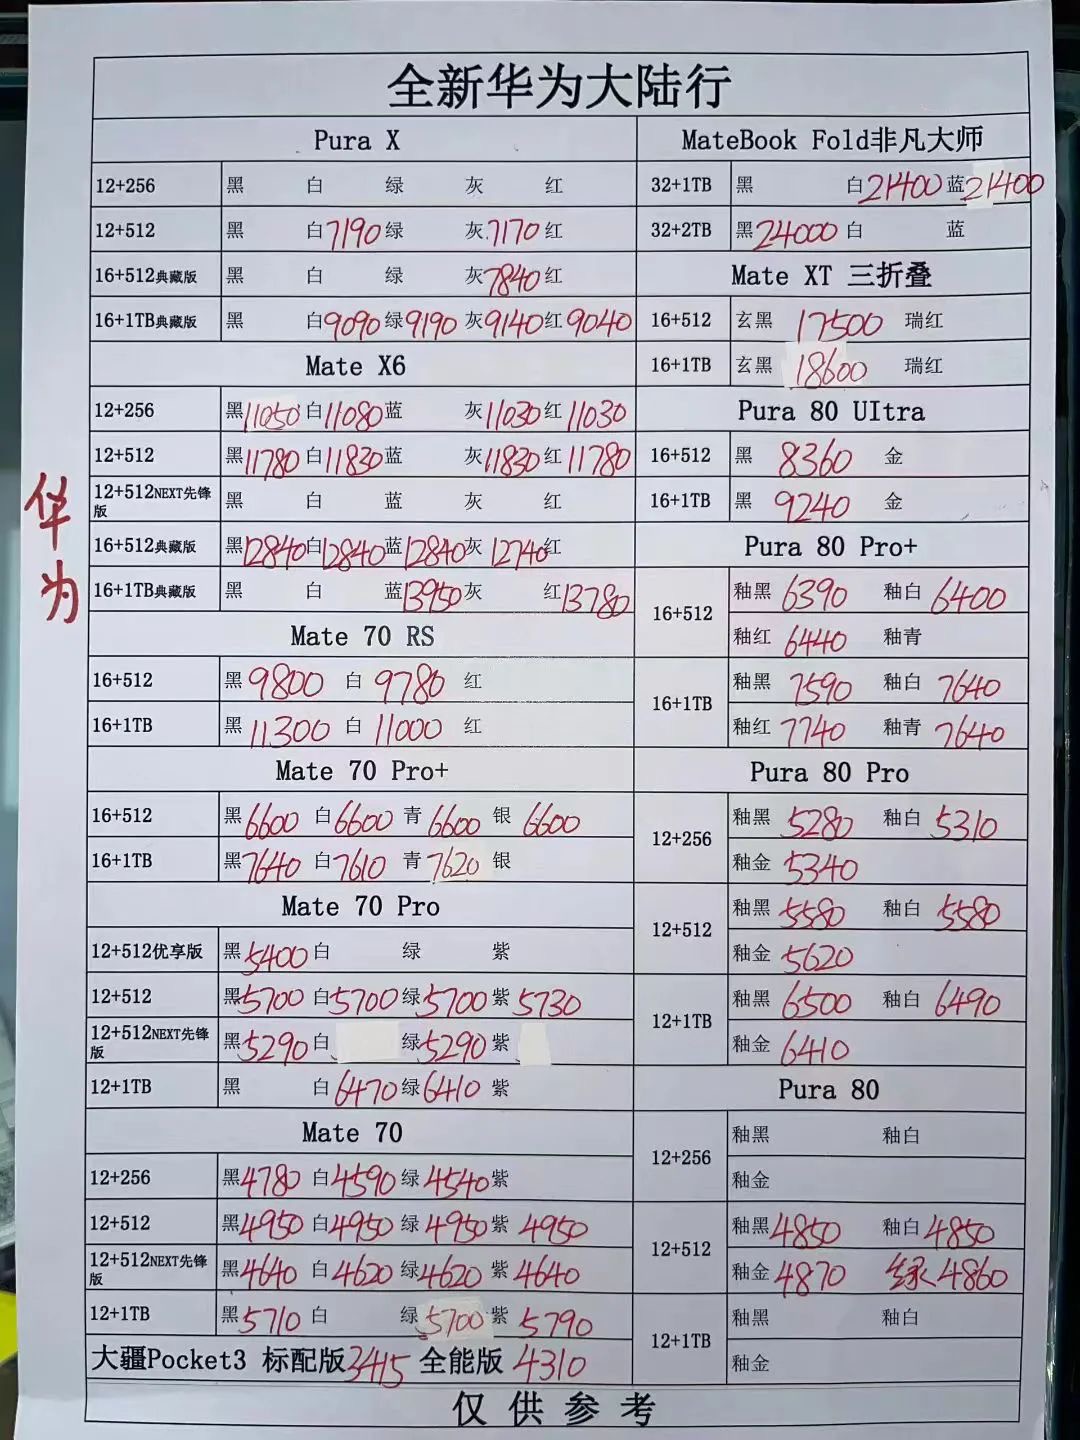 全新华为大陆行
华为
Pura X
12+256 黑 白 绿 灰 红
12+512 黑 白7190 绿 灰7170 红
16+512典藏版 黑 白 绿 灰7840 红
16+1TB典藏版 黑 白9090 绿9190 灰9140 红9040
Mate X6
12+256 黑11050 白11080 蓝 灰11030 红11030
12+512 黑11780 白11830 蓝 灰11830 红11780
12+512NEXT先锋版 黑 白 蓝 灰 红
16+512典藏版 黑12840 白12840 蓝12840 灰12740 红
16+1TB典藏版 黑 白 蓝13950 灰 红13780
Mate 70 RS
16+512 黑9800 白9780 红
16+1TB 黑11300 白11000 红
Mate 70 Pro+
16+512 黑6600 白6600 青6600 银6600
16+1TB 黑7640 白7610 青7620 银
Mate 70 Pro
12+512优享版 黑5400 白 绿 紫
12+512 黑5700 白5700 绿5700 紫5730
12+512NEXT先锋版 黑5290 白 绿5290 紫
12+1TB 黑 白6470 绿6410 紫
Mate 70
12+256 黑4780 白4590 绿4540 紫
12+512 黑4950 白4950 绿4950 紫4950
12+512NEXT先锋版 黑4640 白4620 绿4620 紫4640
12+1TB 黑5710 白 绿5700 紫5790
大疆Pocket3 标配版3415 全能版4310
MateBook Fold非凡大师
32+1TB 黑 白21400 蓝21400
32+2TB 黑24000 白 蓝
Mate XT 三折叠
16+512 玄黑 17500 瑞红
16+1TB 玄黑 18600 瑞红
Pura 80 UItra
16+512 黑 8360 金
16+1TB 黑 9240 金
Pura 80 Pro+
16+512 釉黑 6390 釉白 6400
釉红 6440 釉青
16+1TB 釉黑 7590 釉白 7640
釉红 7740 釉青 7640
Pura 80 Pro
12+256 釉黑 5280 釉白 5310
釉金 5340
12+512 釉黑 5580 釉白 5580
釉金 5620
12+1TB 釉黑 6500 釉白 6490
釉金 6410
Pura 80
12+256 釉黑 釉白
釉金
12+512 釉黑4850 釉白4850
釉金4870 绿4860
12+1TB 釉黑 釉白
釉金
仅供参考